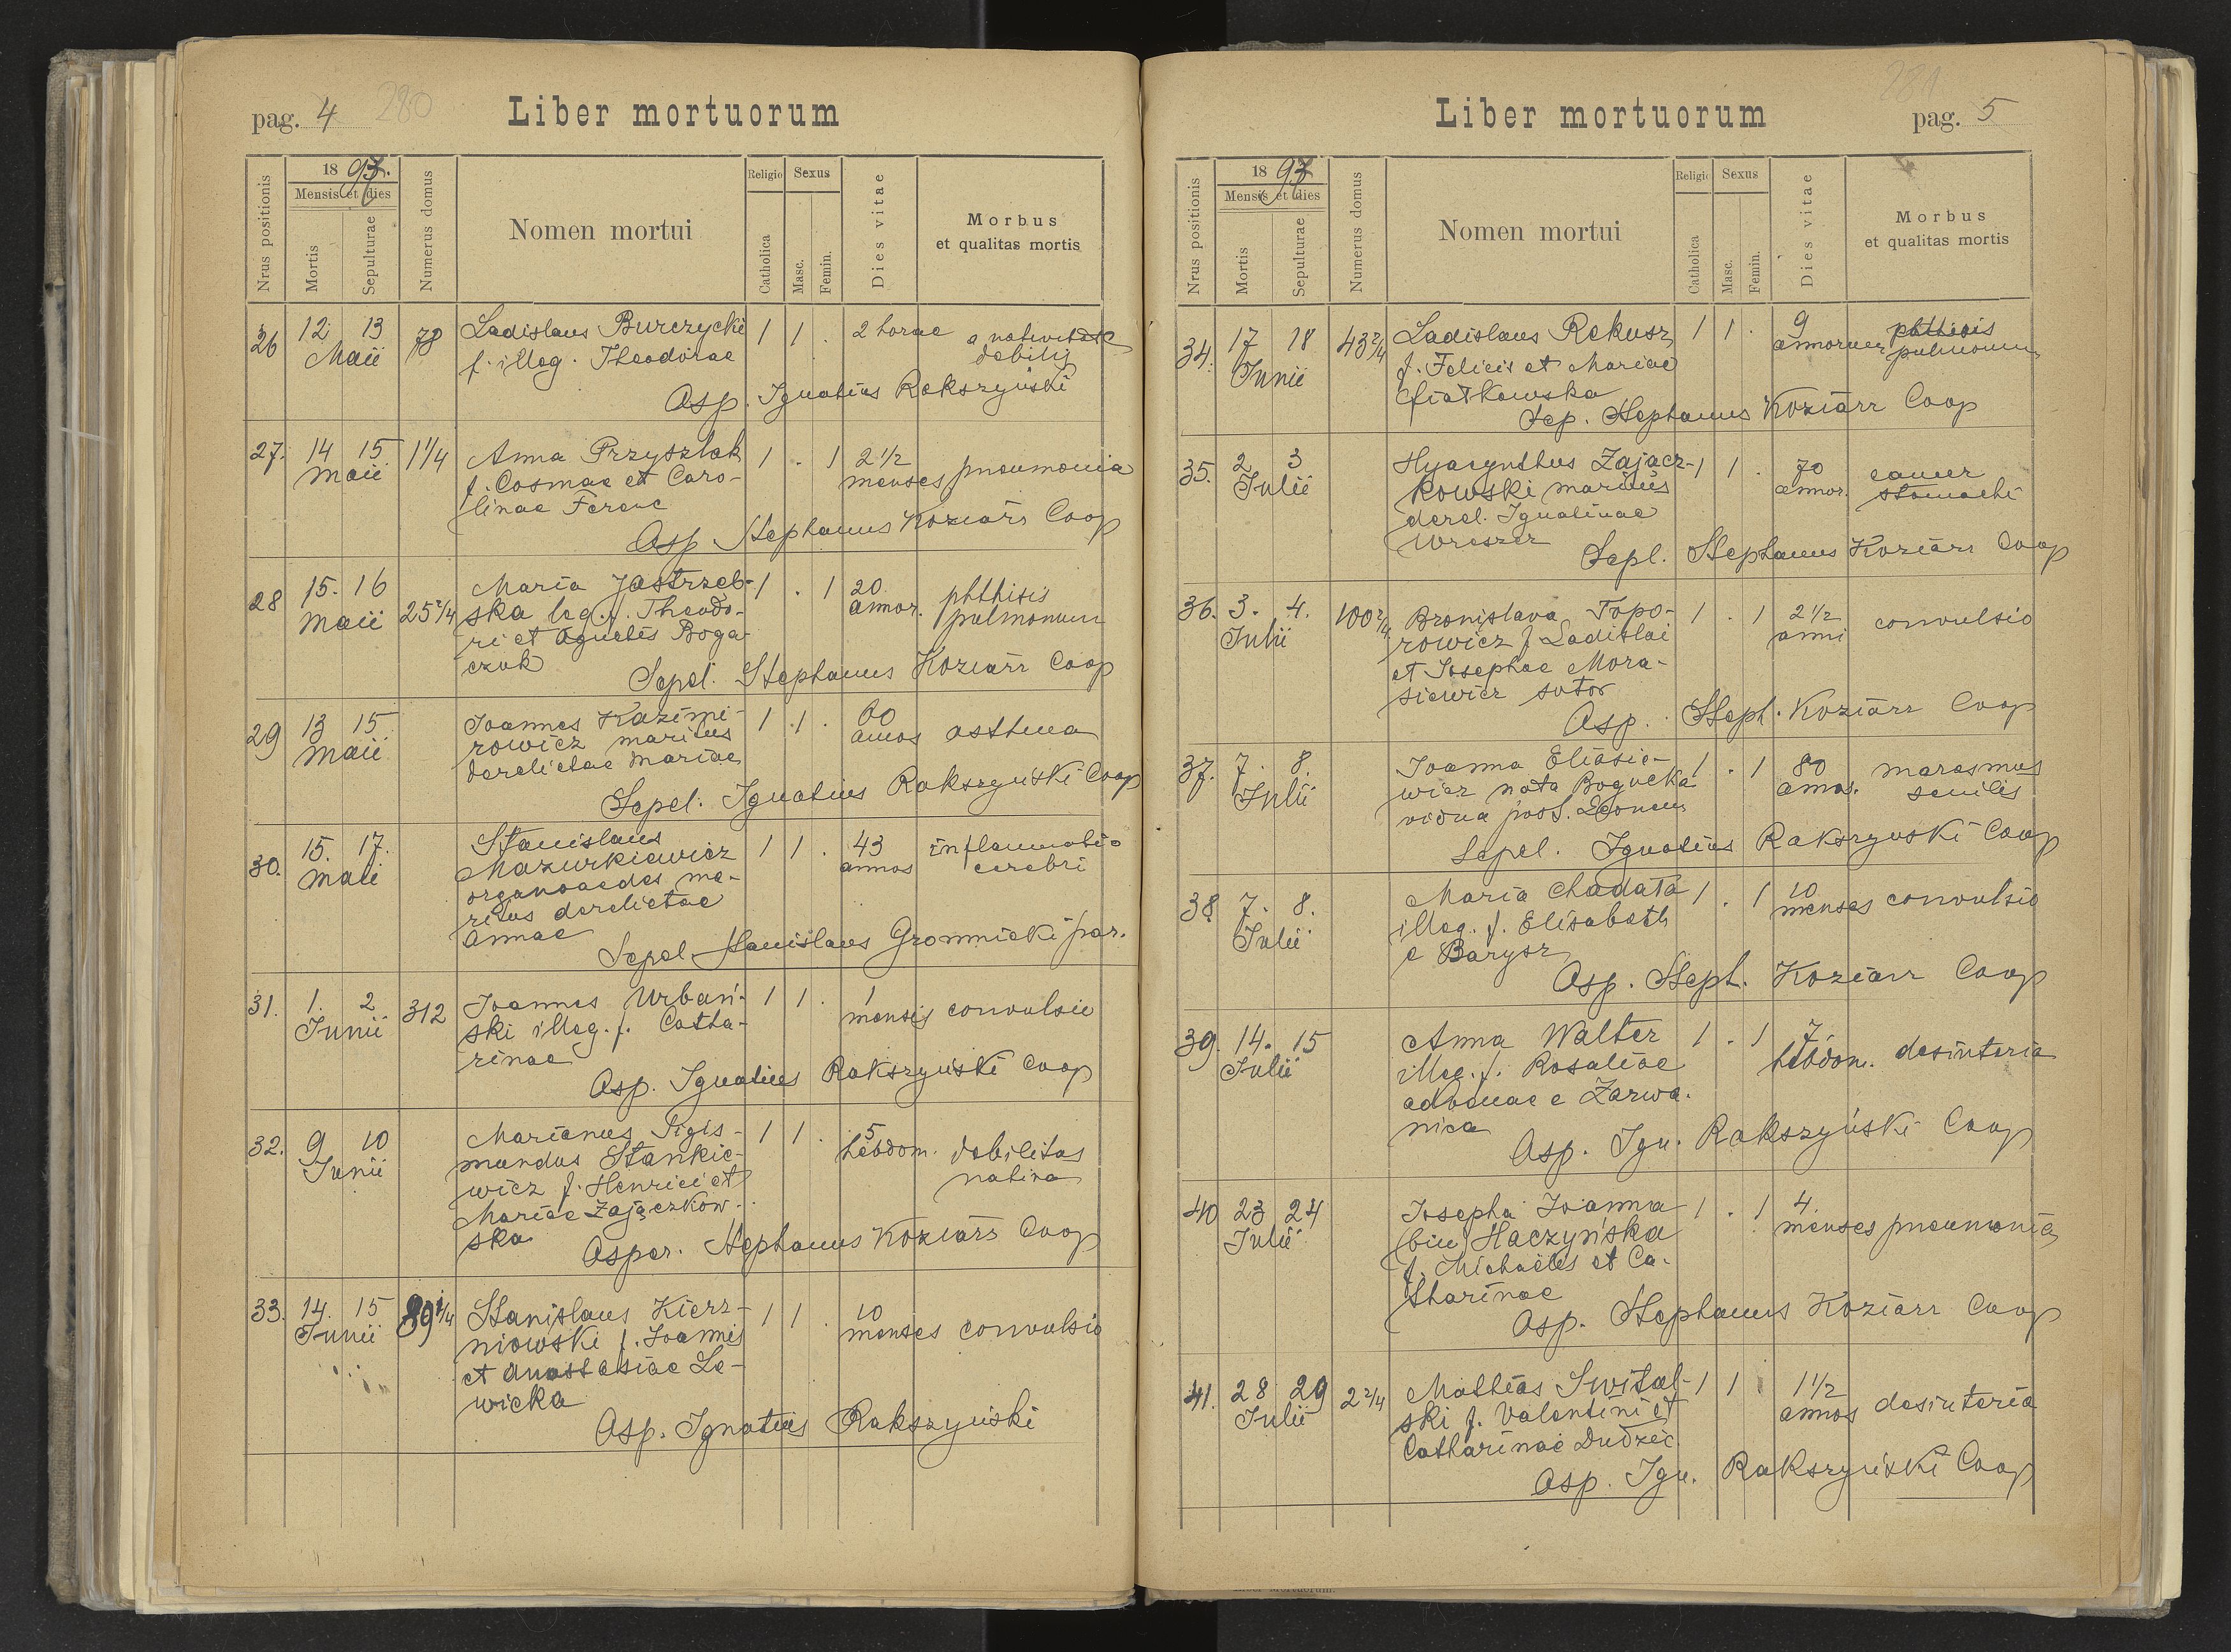 pag. 4 280
Liber mortuorum
Nrus positionis
1893.
Mensis et dies
Mortis
Sepulturae
Numerus domus
Nomen mortui
Religio
Catholica
Sexus
Masc.
Femin.
Dies vitae
Morbus
et qualitas mortis
26 12 13 78 Ladislaus Burczycki 1 1 . 2 horae a nativitate
Maii f. illeg. Theodorae debilis
Asp. Ignatius Rakszyński
27. 14 15 1 1/4 Anna Przyszlak 1 . 1 2 1/2
Maii f. Cosmae et Caro- menses pneumonia
linae Ferenc
Asp. Stephanus Koziarz Coop
28 15. 16 25 2/4 Maria Jastrzeb- 1 . 1 20 phthisis
Maii ska leg. f. Theodo- annor. pulmonum
ri et Agnetis Boga-
czuk
Sepel. Stephanus Koziarz Coop
29 13 15 Joannes Kazimi- 1 1 . 60
Maii rowicz maritus annos asthma
derelictae Mariae
Sepel. Ignatius Rakszyński Coop
30. 15. 17. Stanislaus 1 1 . 43 inflammatio
Maii Mazurkiewicz annos cerebri
organoaedes ma-
ritus derelictae
Annae
Sepel. Stanislaus Gromnicki par.
31. 1. 2 312 Joannes Urbań- 1 1 . 1
Junii ski illeg. f. Catha- mensis convulsio
rinae
Asp. Ignatius Rakszyński Coop
32. 9 10 Marianus Sigis- 1 1 . 5
Junii mundus Stankie- hebdom. debilitas
wicz f. Henrici et nativa
Mariae Zajączkow-
ska
Asper. Stephanus Koziarz Coop
33. 14. 15 89 1/4 Stanislaus Kierz- 1 1 . 10
Junii niowski f. Joannis menses convulsio
et Anastasiae Le-
wicka
Asp. Ignatius Rakszyński
281
Liber mortuorum
pag. 5
Nrus positionis
1893
Mensis et dies
Mortis
Sepulturae
Numerus domus
Nomen mortui
Religio
Catholica
Sexus
Masc.
Femin.
Dies vitae
Morbus
et qualitas mortis
34. 17 18 43 2/4 Ladislaus Rekusz 1 1 . 9 phthisis
Junii f. Felicis et Mariae annorum pulmonum
Kwiatkowska
Sep. Stephanus Koziarz Coop
35. 2 3 Hyacynthus Zajacz- 1 1 . 70 cancer
Julii kowski maritus annor. stomachi
derel. Ignatinae
Wreszer
Sepl. Stephanus Koziarz Coop
36. 3. 4. 100 2/4 Bronislava Topo- 1 . 1 2 1/2 convulsio
Julii rowicz f. Ladislai anni
et Josephae Mora-
siewicz sutor
Asp. Steph. Koziarz Coop
37. 7. 8. Joanna Eliasie- 1 . 1 80 marasmus
Julii wicz nata Bogucka annos. senilis
vidua post. Leonem
Sepel. Ignatius Rakszyński Coop
38. 7. 8. Maria Chadata 1 . 1 10
Julii illeg. f. Elisabeth menses convulsio
e Barysz
Asp. Steph. Koziarz Coop
39. 14. 15 Anna Walter 1 . 1 7
Julii illeg. f. Rosaliae hebdom. desinteria
advenae e Zarwa-
nica
Asp. Ign. Rakszyński Coop
40 23 24 Josepha Joanna 1 . 1 4
Julii (bin) Haczyńska menses pneumonia
f. Michaelis et Ca-
tharinae
Asp. Stephanus Koziarz Coop
41. 28 29 2 2/4 Mathias Swital- 1 1 1 1/2
Julii ski f. Valentini et annos desinteria
Catharinae Dudzic
Asp. Ign. Rakszyński Coop
Liber mortuorum.